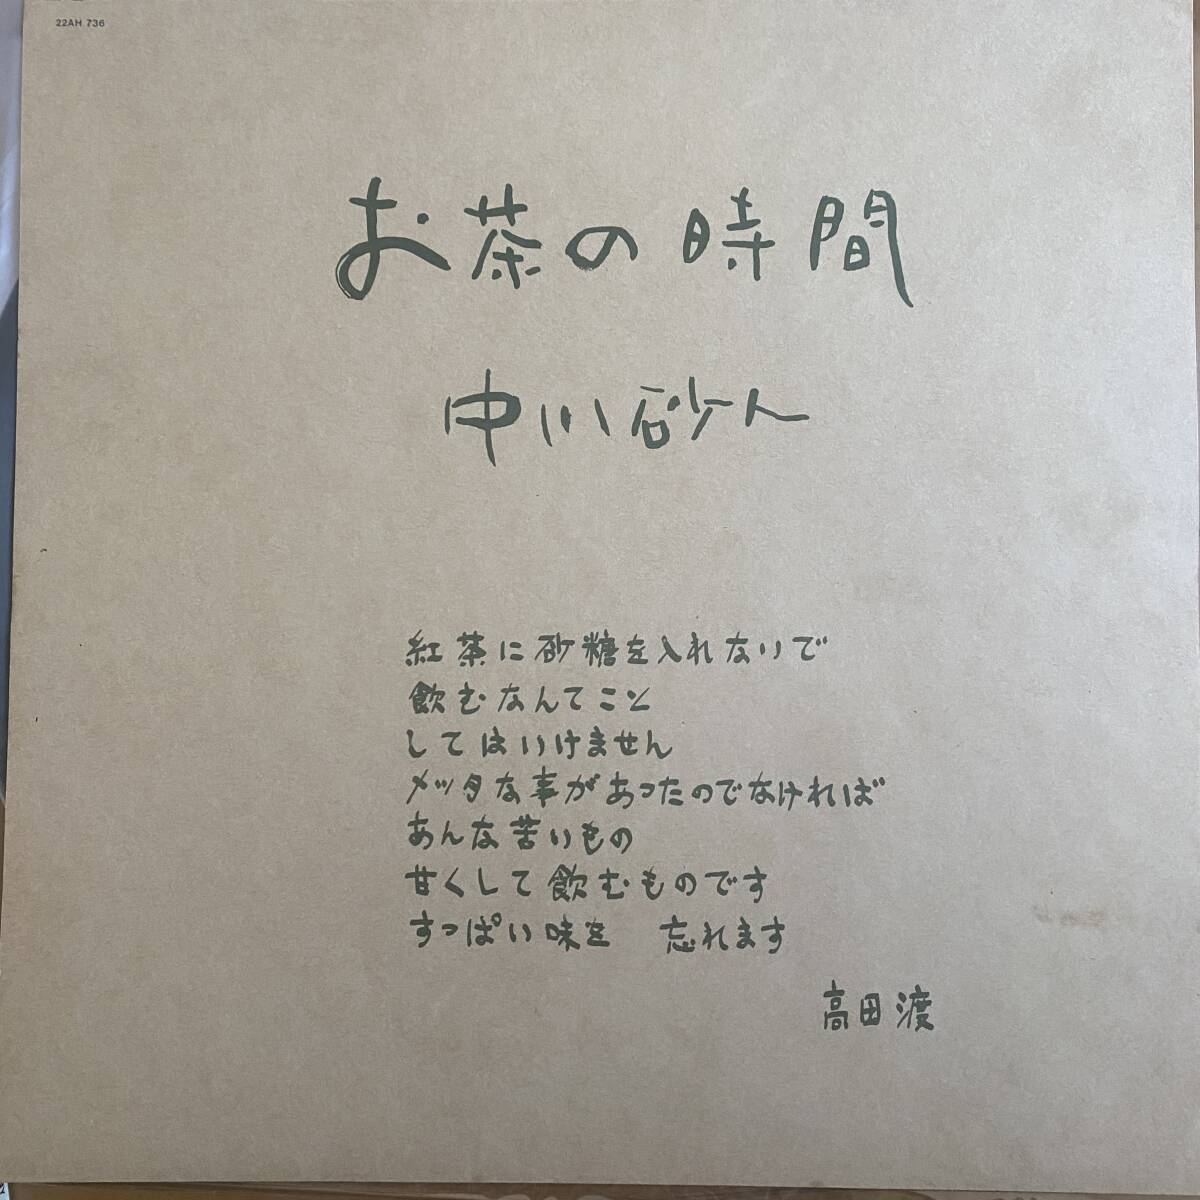 22AH 736
お茶の時間
中川砂人
紅茶に砂糖を入れないで
飲むなんてこと
してはいけません
メッタな事があったのでなければ
あんな苦いもの
甘くして飲むものです
すっぱい味を 忘れます
高田渡